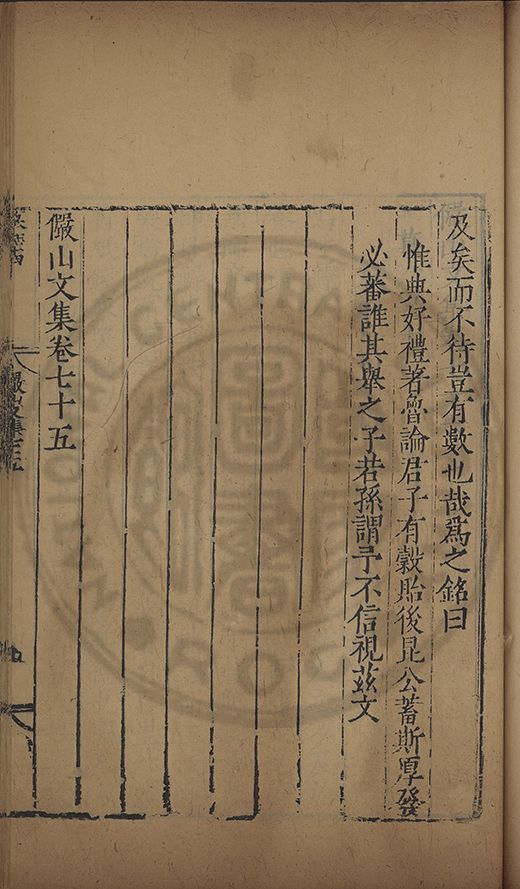 及矣而不待豈有數也哉爲之銘曰
惟典好禮著魯論君子有穀貽後昆公蓄斯厚發
必蕃誰其舉之子若孫謂予不信視茲文
儼山文集卷七十五